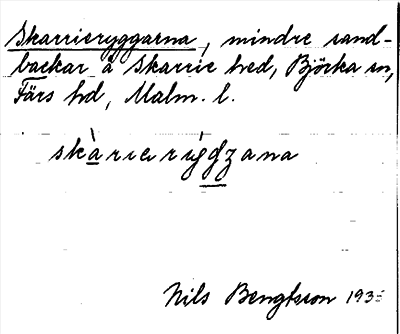 Skarrieryggarna, mindre sand-
backar å Skarrie hed, Björka sn,
Färs hd, Malm. l.
skàrierýgʒana
Nils Bengtsson 193